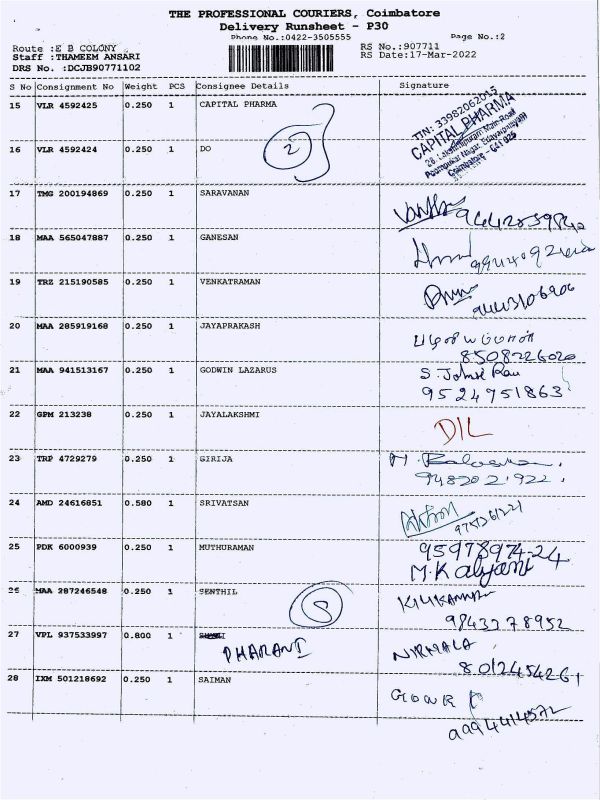 THE PROFESSIONAL COURIERS, Coimbatore
Delivery Runsheet - P30
Phone No.:0422-3505555
Page No.:2
Route :E B COLONY
RS No.:907711
Staff :THAMEEM ANSARI
RS Date:17-Mar-2022
DRS No. :DCJB90771102
S No Consignment No Weight PCS Consignee Details Signature
15 VLR 4592425 0.250 1 CAPITAL PHARMA
TIN: 33982062015
CAPITAL PHARMA
2
16 VLR 4592424 0.250 1 DO
17 TMG 200194869 0.250 1 SARAVANAN
18 MAA 565047887 0.250 1 GANESAN
19 TRZ 215190585 0.250 1 VENKATRAMAN
20 MAA 285919168 0.250 1 JAYAPRAKASH
8508226020
21 MAA 941513167 0.250 1 GODWIN LAZARUS
9524751863
22 GPM 213238 0.250 1 JAYALAKSHMI
DIL
23 TRP 4729279 0.250 1 GIRIJA
9482021922
24 AMD 24616851 0.580 1 SRIVATSAN
25 PDK 6000939 0.250 1 MUTHURAMAN
9597897424
M.Kalyani
26 MAA 287246548 0.250 1 SENTHIL
S
9843378952
27 VPL 937533997 0.800 1
NIRMALA
8012454261
28 IXM 501218692 0.250 1 SAIMAN
9994414572